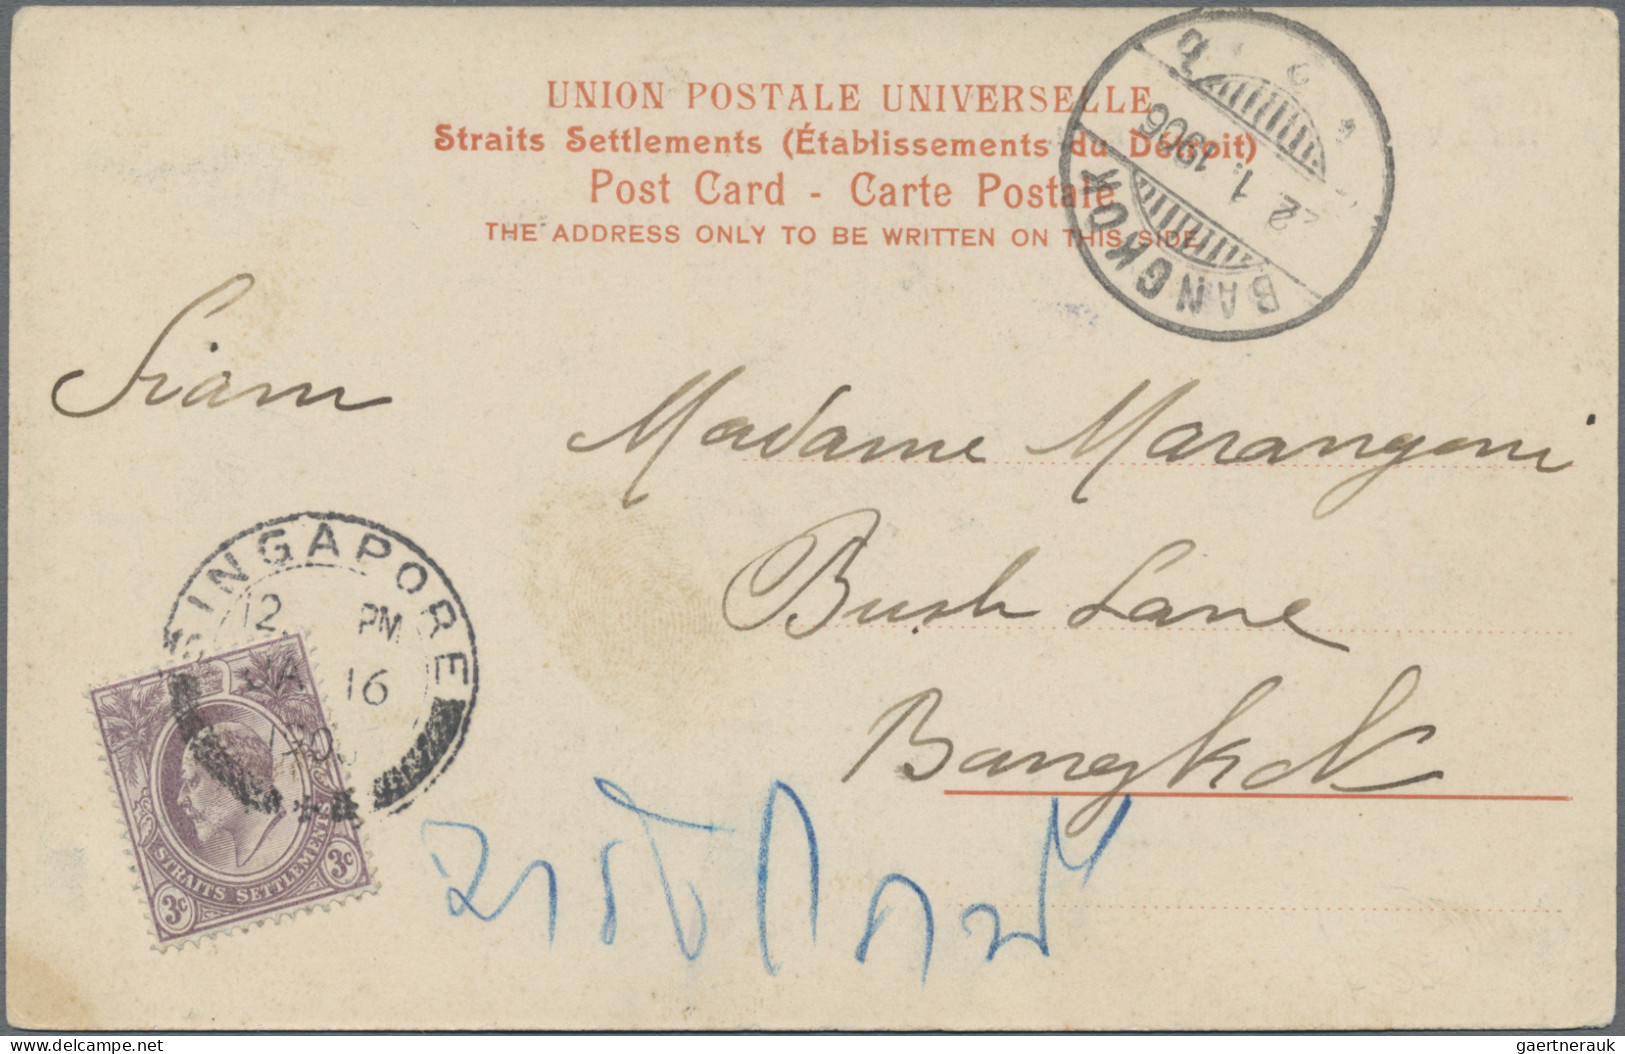 UNION POSTALE UNIVERSELLE
Straits Settlements (Établissements du Détroit)
Post Card - Carte Postale
THE ADDRESS ONLY TO BE WRITTEN ON THIS SIDE.
BANGKOK
22 1. 1906
Siam
Madame Marangoni
Bush Lane
Bangkok
SINGAPORE
12 PM
JA 16
STRAITS SETTLEMENTS
3c 3c
gaertnerauk